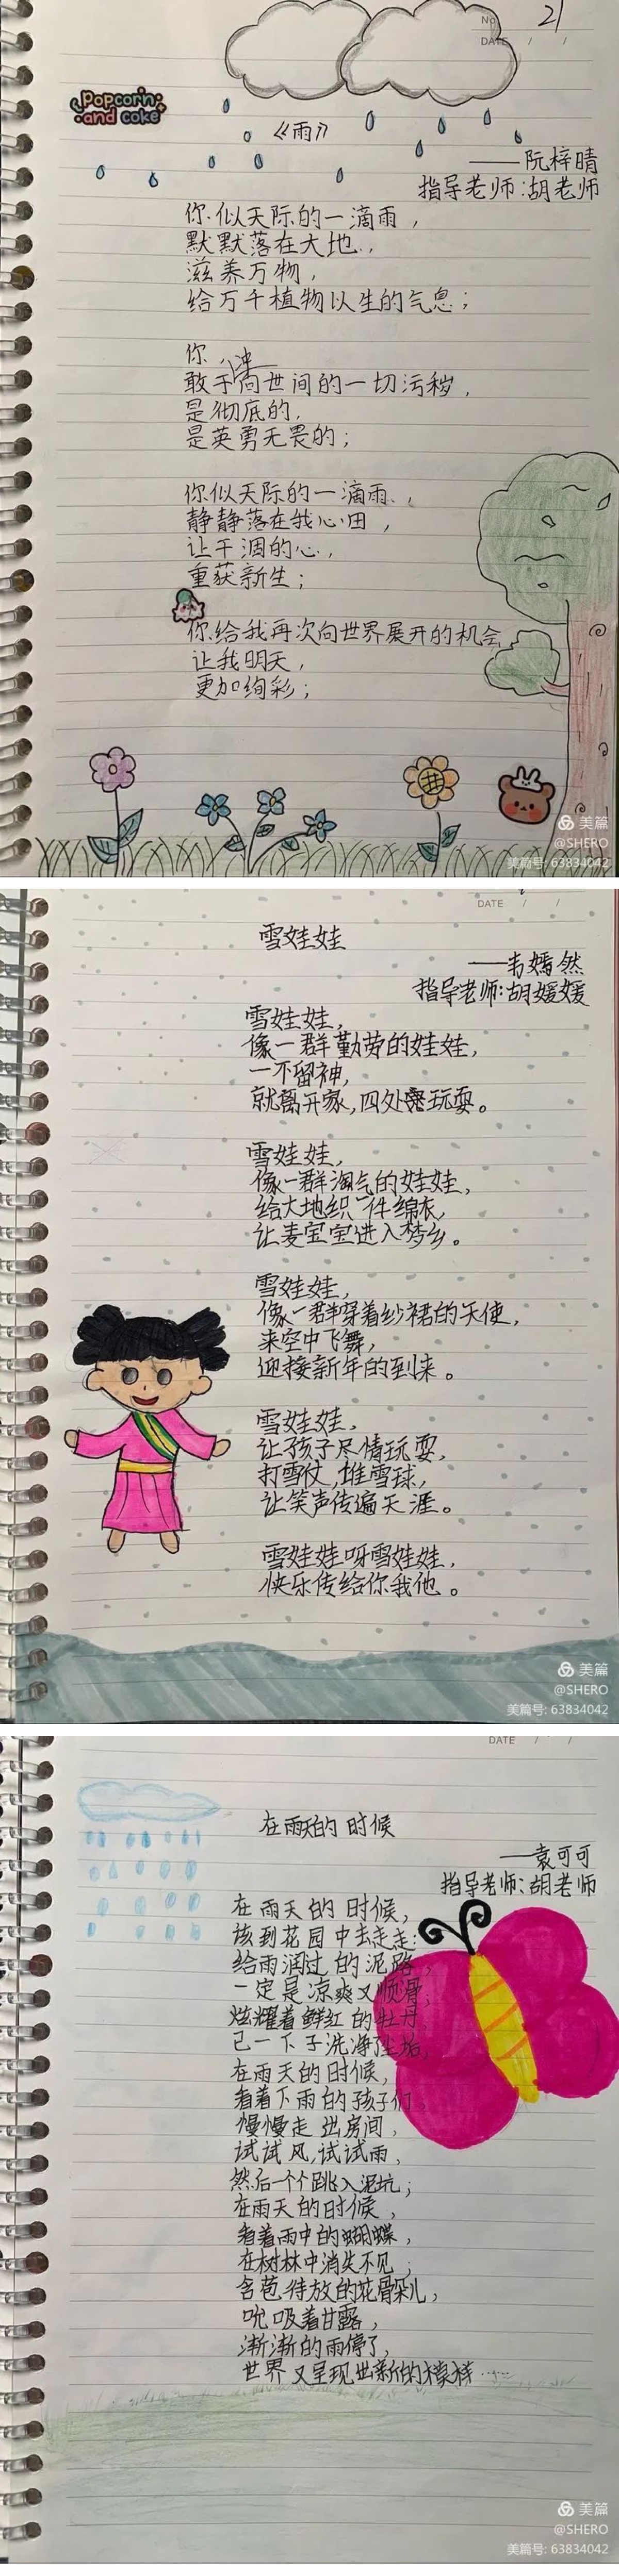 No. 21
DATE / /
Popcorn
and coke
《雨》
——阮梓晴
指导老师:胡老师
你似天际的一滴雨，
默默落在大地，
滋养万物，
给万千植物以生的气息；
你，
敢于冲向世间的一切污秽，
是彻底的，
是英勇无畏的；
你似天际的一滴雨，
静静落在我心田，
让干涸的心，
重获新生；
你给我再次向世界展开的机会
让我明天，
更加绚彩；
美篇
@SHERO
美篇号: 63834042
DATE / /
雪娃娃
——韦嫣然
指导老师:胡媛媛
雪娃娃，
像一群勤劳的娃娃，
一不留神，
就离开家,四处玩耍。
雪娃娃，
像一群淘气的娃娃，
给大地织一件绵衣，
让麦宝宝进入梦乡。
雪娃娃，
像一群穿着纱裙的天使，
来空中飞舞，
迎接新年的到来。
雪娃娃，
让孩子尽情玩耍，
打雪仗,堆雪球，
让笑声传遍天涯。
雪娃娃呀雪娃娃，
快乐传给你我他。
美篇
@SHERO
美篇号: 63834042
DATE / /
在雨天的时候
——袁可可
指导老师:胡老师
在雨天的时候，
该到花园中去走走:
给雨润过的泥路，
一定是凉爽又顺滑，
炫耀着鲜红的牡丹，
已一下子洗净尘垢，
在雨天的时候，
看着下雨的孩子们，
慢慢走出房间，
试试风,试试雨，
然后一个个跳入泥坑；
在雨天的时候，
看着雨中的蝴蝶，
在树林中消失不见；
含苞待放的花骨朵儿，
吮吸着甘露，
渐渐的雨停了，
世界又呈现出新的模样……
美篇
@SHERO
美篇号: 63834042